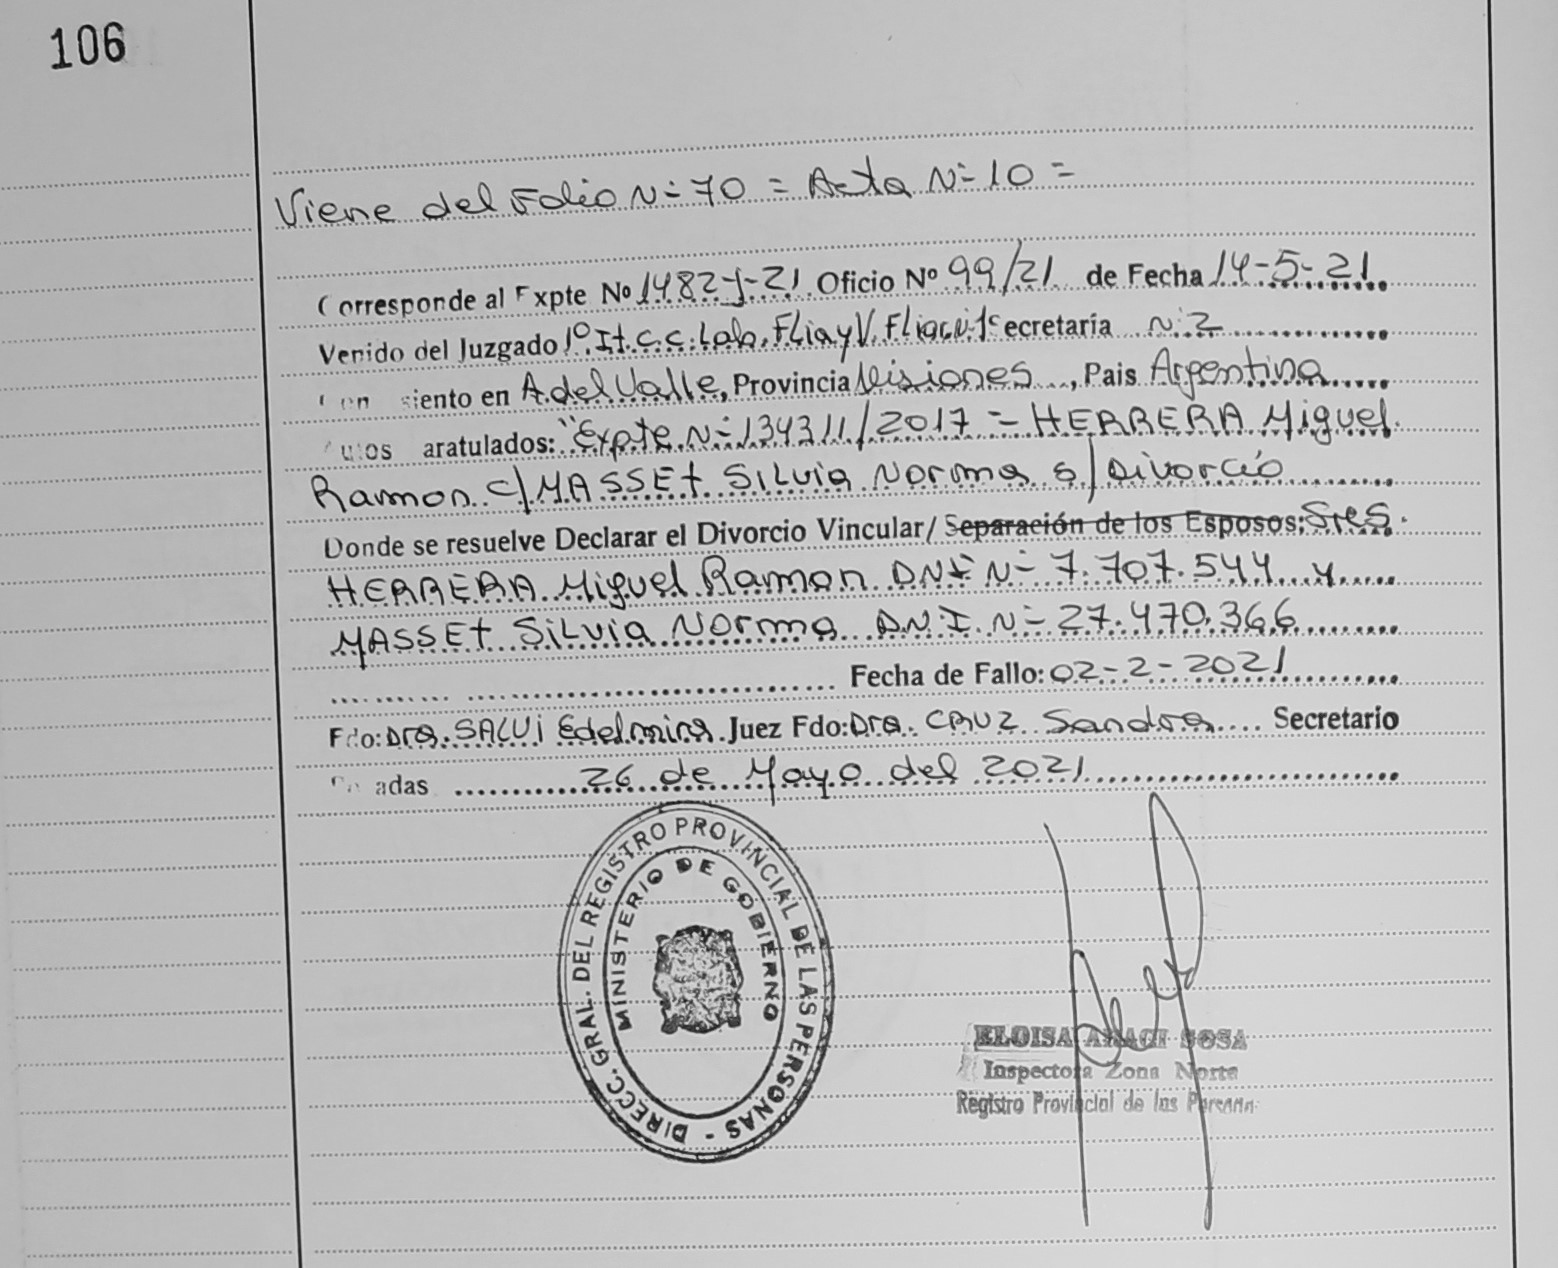 106
Viene del Folio Nº 70 = Acta Nº 10 =
Corresponde al Expte No 1482-J-21 Oficio Nº 99/21 de Fecha 14-5-21
Venido del Juzgado 1º It. C.C. Lab. Flia y V. Fliar Nº 1 Secretaría Nº 2
siento en A. del Valle, Provincia Misiones, Pais Argentina
aratulados: "Expte Nº 134311/2017 = HERRERA Miguel
Ramon c/ MASSEt SiLvia Norma s/ Divorcio
Donde se resuelve Declarar el Divorcio Vincular/ Separación de los Esposos: Sres.
HERRERA Miguel Ramon DNI Nº 7.707.544 y
MASSEt SiLvia Norma D.N.I. Nº 27.470.366
Fecha de Fallo: 02-2-2021
Fdo: Dra. SALVI Edelmira Juez Fdo: Dra. CRUZ Sandra Secretario
adas 26 de Mayo del 2021
DIRECC. GRAL. DEL REGISTRO PROVINCIAL DE LAS PERSONAS -
MINISTERIO DE GOBIERNO
ELOISA SOSA
Inspectora Zona Norte
Registro Provincial de las Person